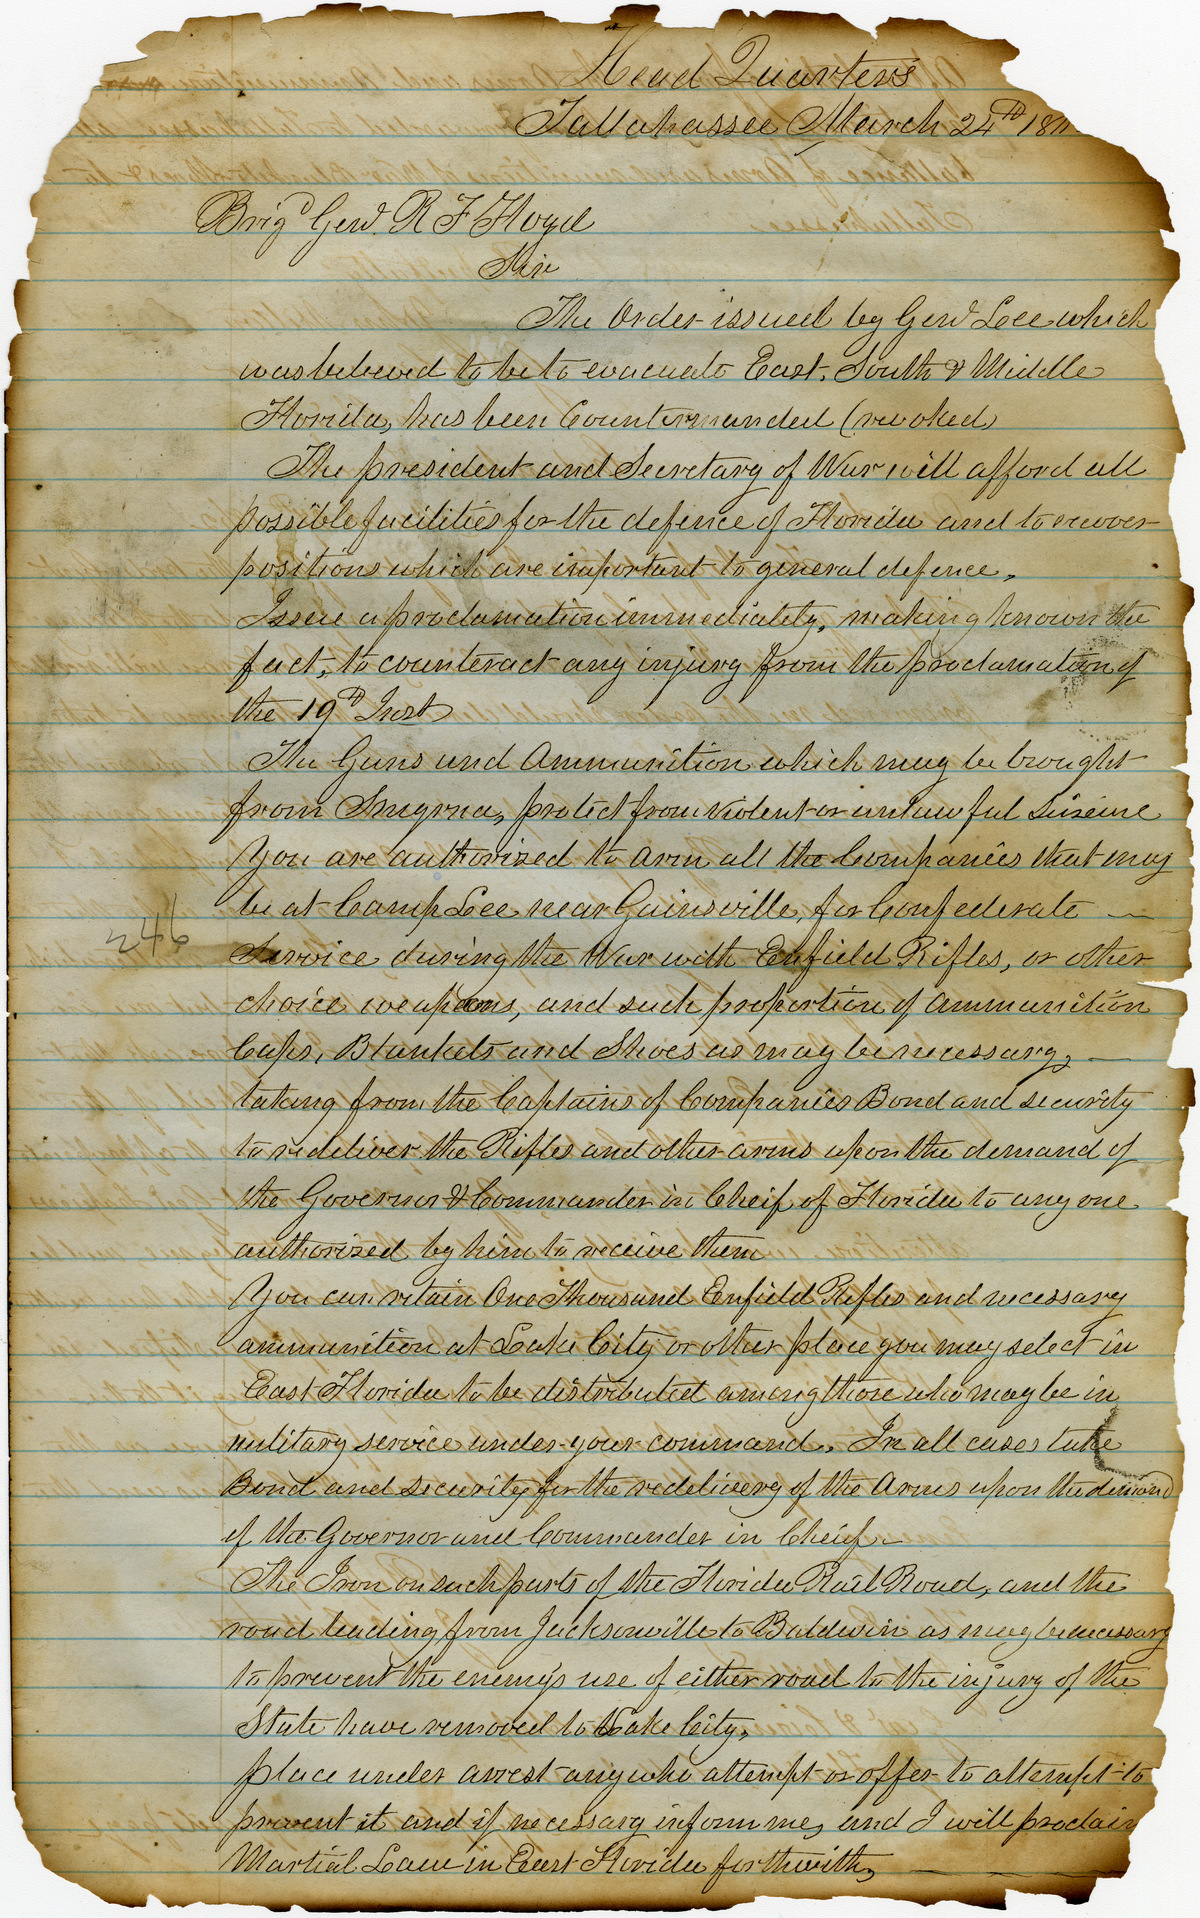 Head Quarters
Tallahassee March 24th 18
Brigd Genl. R F Floyd
Sir
The Order issued by Genl Lee which
was believed to be to evacuate East, South & Middle
Florida, has been Countermanded (revoked)
The president and Secretary of War will afford all
possible facilities for the defence of Florida and to recover
positions which are important to general defence,
Issue a proclamation immediately, making known the
fact, to counteract any injury from the proclamation of
the 19th Inst
The Guns and Ammunition which may be brought
from Smyrna, protect from violent or unlawful
You are authorized to Arm all the Companies that may
be at Camp Lee near Gainsville, for Confederate
246
Service during the War with Enfield Rifles, or other
choice weapons, and such proportion of ammunition
Caps, Blankets and Shoes as may be necessary,
taking from the Captains of Companies Bond and security
to redeliver the Rifles and other arms upon the demand of
the Governor & Commander in Cheif of Florida to any one
authorized by him to receive them
You can retain One Thousand Enfield Rifles and necessary
ammunition at Lake City or other place you may select in
East Florida to be distributed among those who may be in
military service under your command. In all cases take
Bond and security for the redelivery of the Arms upon the demand
of the Governor and Commander in Cheif
The Iron on such parts of the Florida Rail Road, and the
road leading from Jacksonville to Baldwin as may be necessary
to prevent the enemy's use of either road to the injury of the
State have removed to Lake City,
place under arrest any who attempt or offer to attempt to
prevent it and if necessary inform me, and I will proclaim
Martial Law in East Florida forthwith,